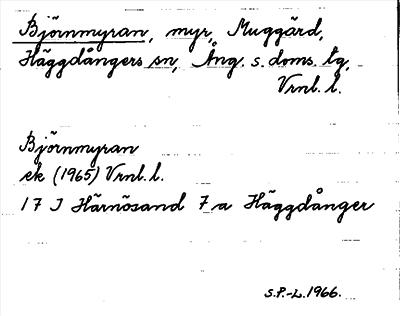 Björnmyran, myr, Muggärd,
Häggdångers sn, Ång. s. doms. tg,
Vrnl. l.
Björnmyran
ek (1965) Vrnl. l.
17 J Härnösand 7 a Häggdånger
S.P.-L. 1966.